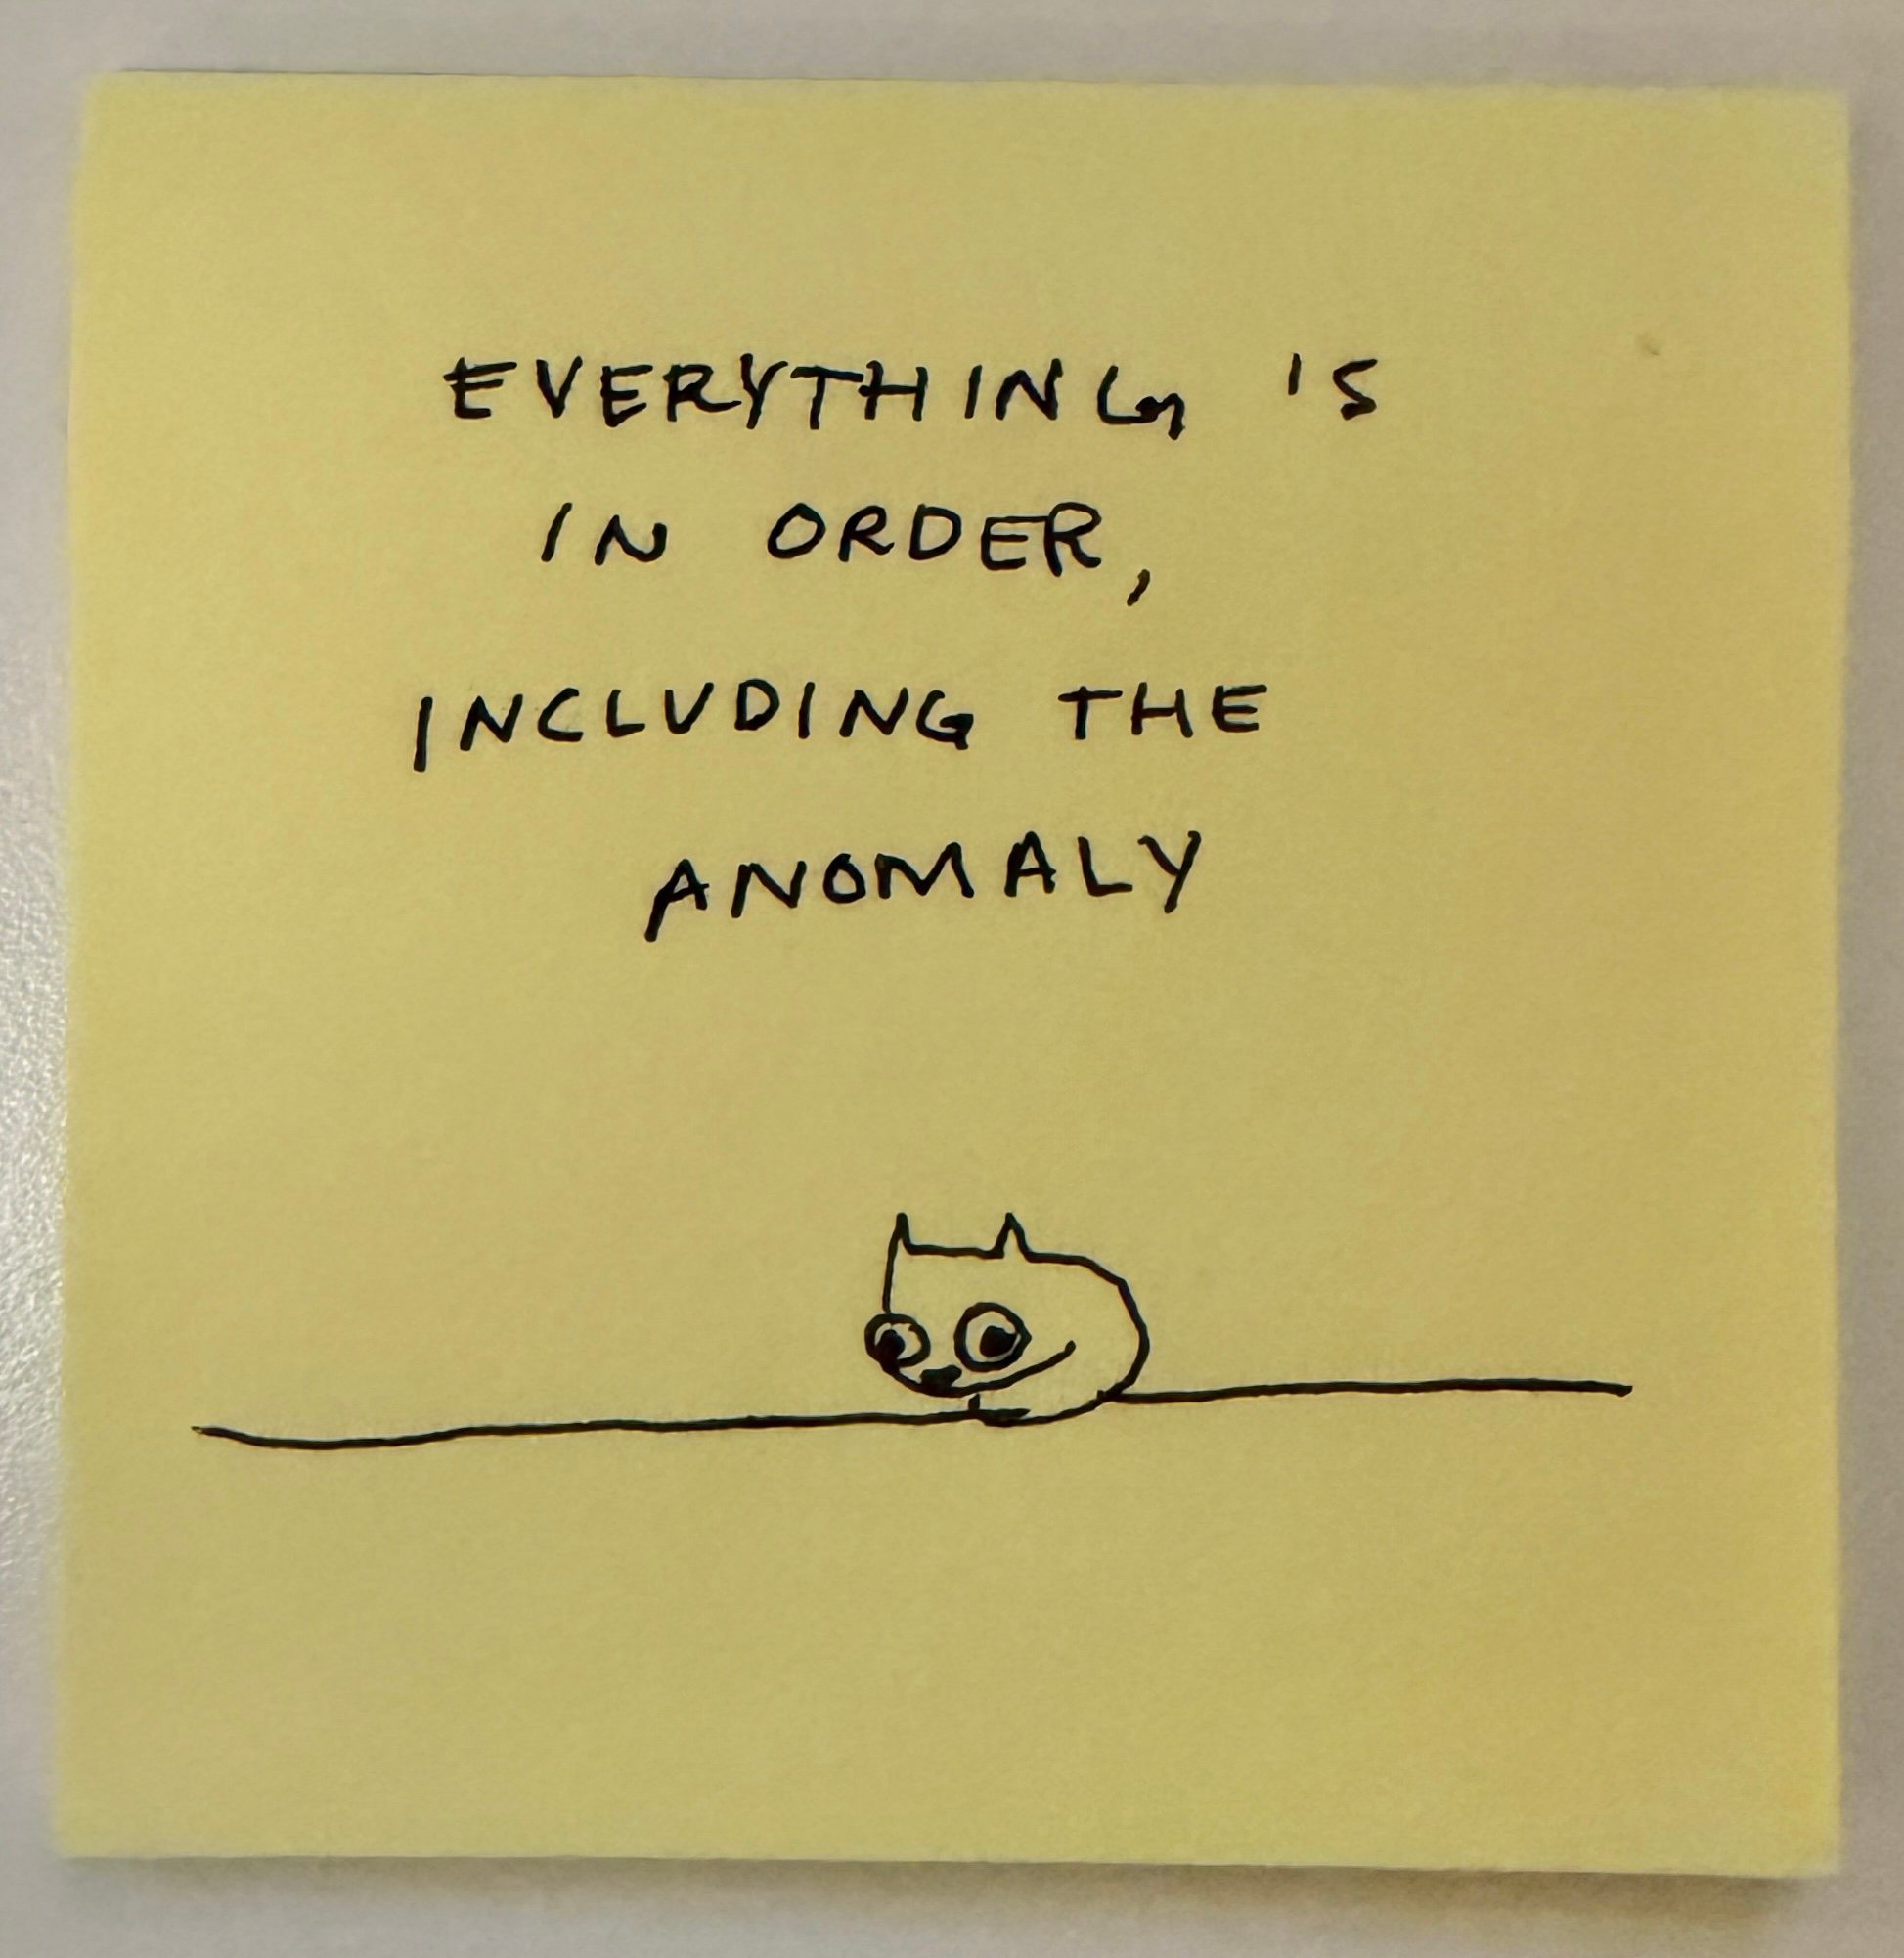 EVERYTHING IS
IN ORDER,
INCLUDING THE
ANOMALY